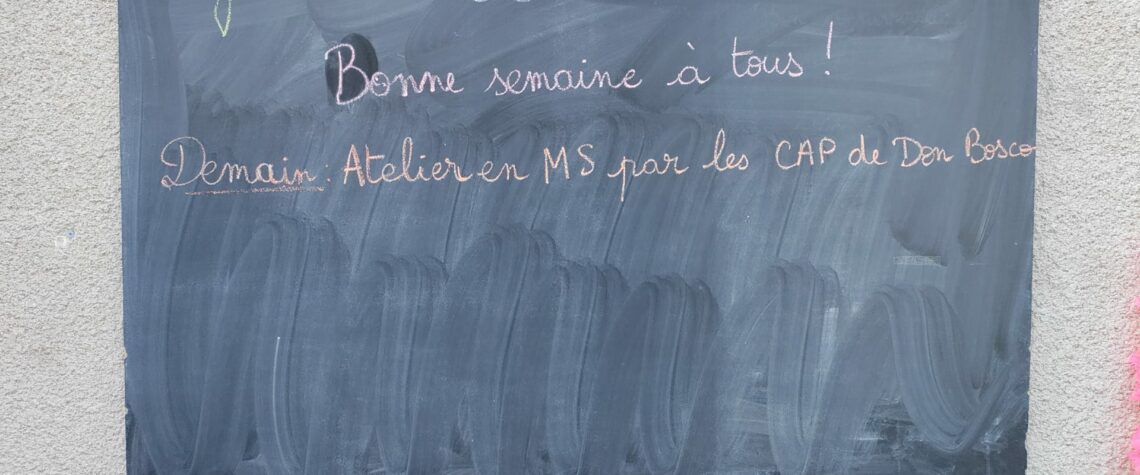 Bonne semaine à tous !
Demain : Atelier en MS par les CAP de Don Bosco